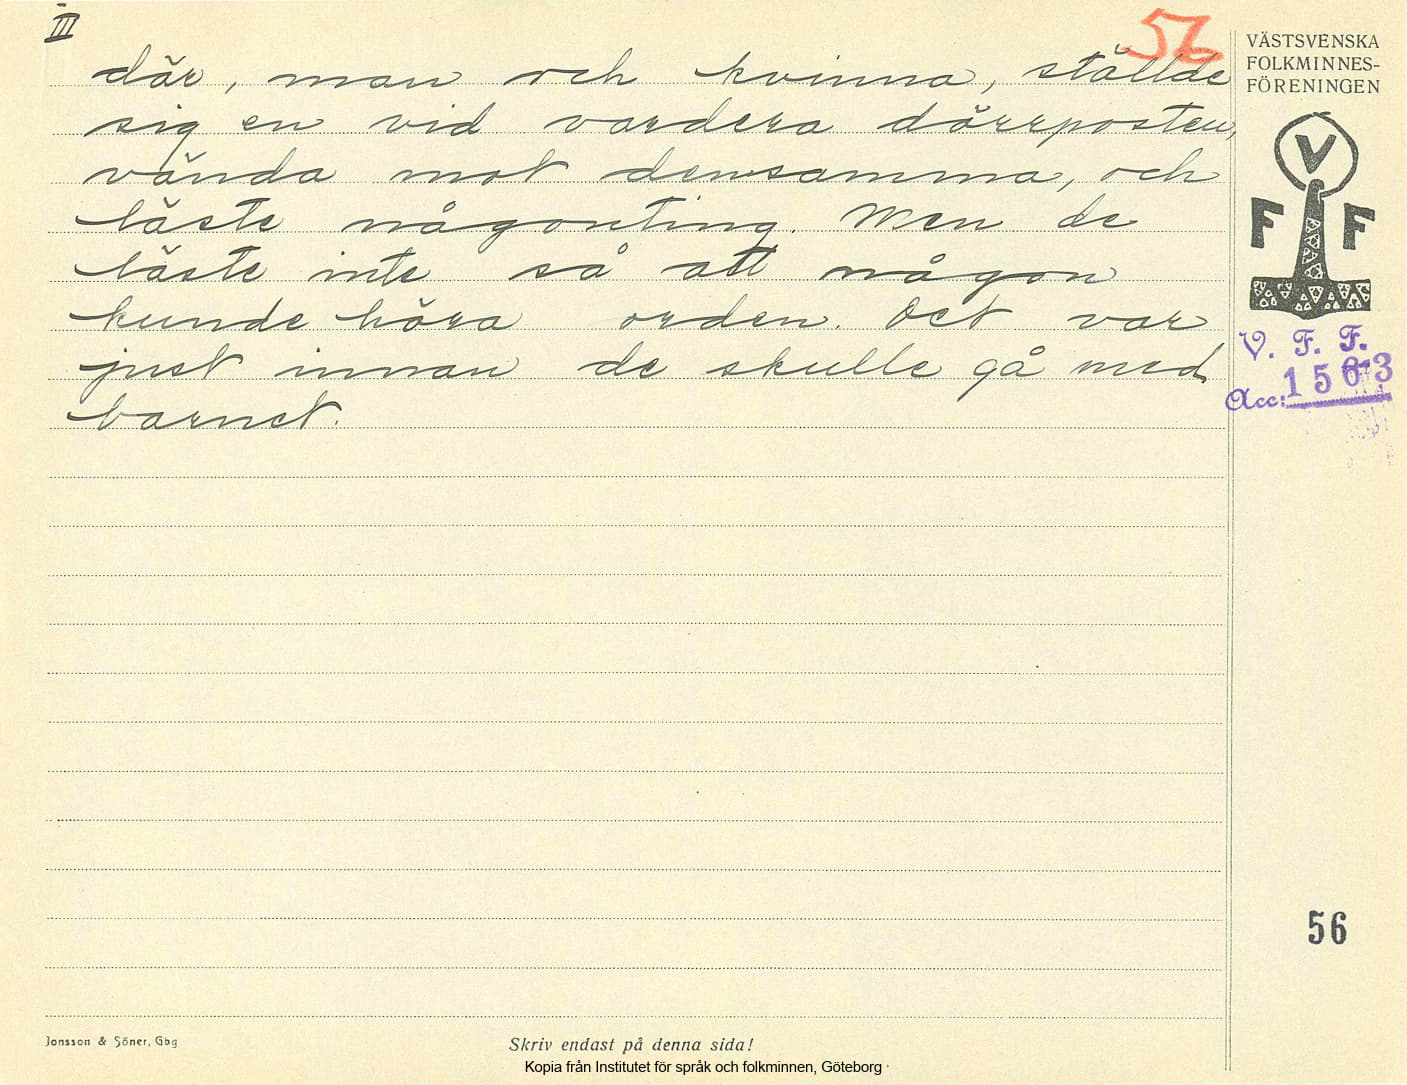 III
56
där, man och kvinna, ställde
sig en vid vardera dörrposten,
vända mot densamma, och
läste någonting. Men de
läste inte så att någon
kunde höra orden. Det var
just innan de skulle gå med
barnet.
VÄSTSVENSKA
FOLKMINNES-
FÖRENINGEN
V
F F
V. F. F.
Acc: 1563
56
Jonsson & Söner, Gbg
Skriv endast på denna sida!
Kopia från Institutet för språk och folkminnen, Göteborg